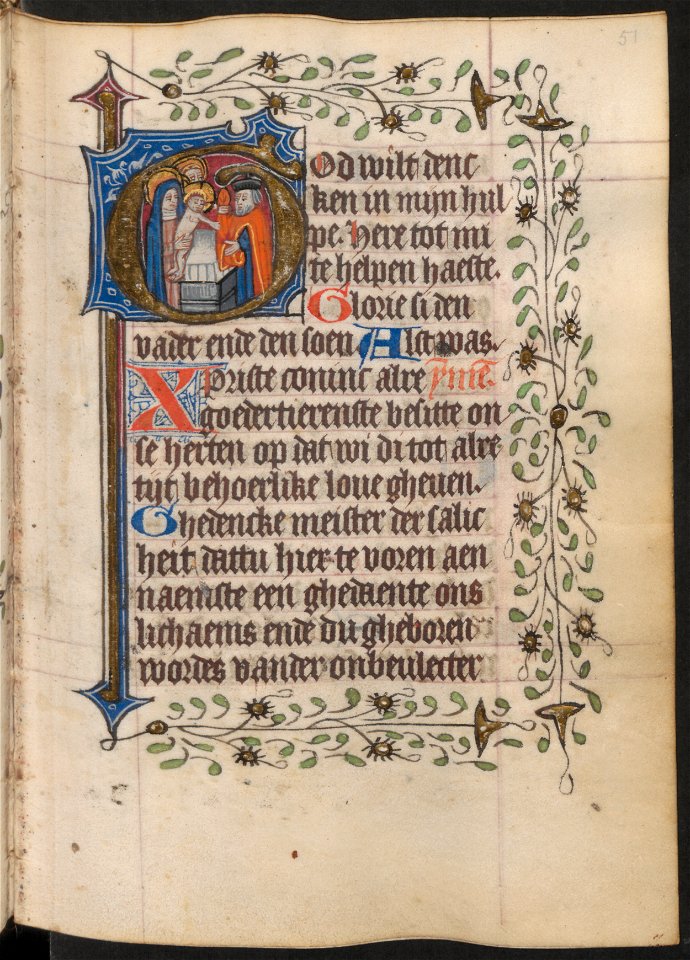 51
God wilt denc
ken in mijn hul
pe. Here tot mi
te helpen haeste.
Glorie si den
vader ende den soen Alst was.
Xpriste coninc alre ẏmē
goedertierenste besitte on
se herten op dat wi di tot alre
tijt behoerlike loue gheuen.
Ghedencke meister der salic
heit dattu hier te voren aen
naemste een ghedaente ons
lichaems ende du gheboren
wordes vander onbeulecter